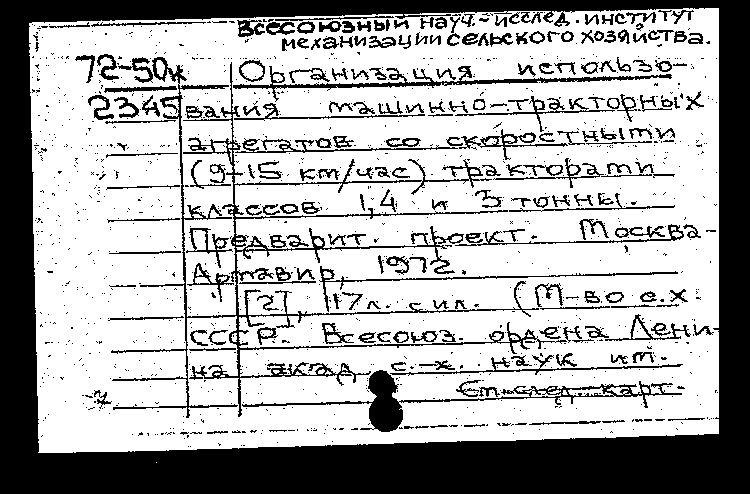 Всесоюзный науч.-исслед. институт
механизации сельского хозяйства.
72-50к Организация использо-
2345 вания машинно-тракторных
агрегатов со скоростными
(9-15 км/час) тракторами
классов 1,4 и 3 тонны.
Предварит. проект. Москва-
Армавир, 1972.
[2], 117 л. с ил. (М-во с.х.
СССР. Всесоюз. ордена Лени-
на акад с.-х. наук им.
См. след. карт.